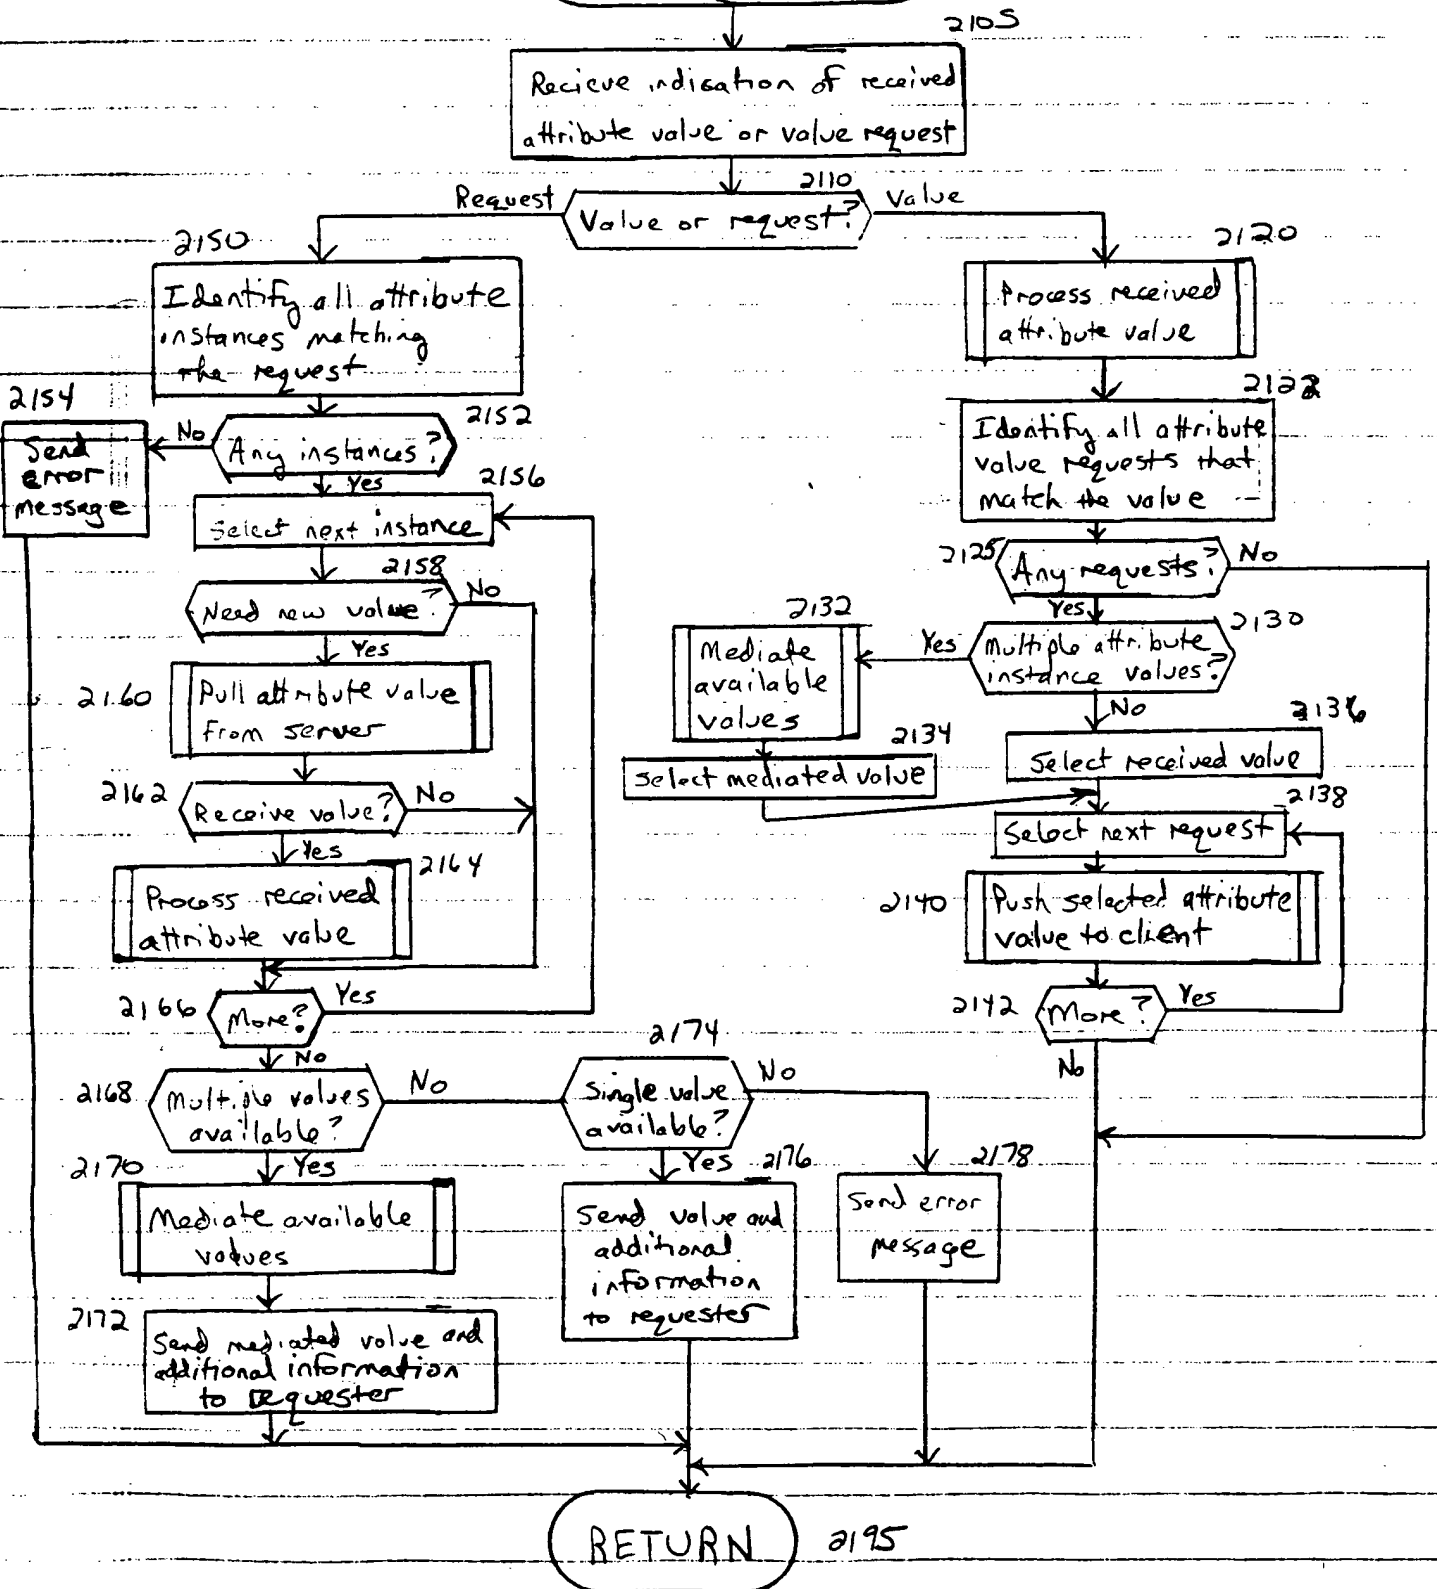 2105
Recieve indication of received
attribute value or value request
2110
Value or request?
Request
Value
2150
Identify all attribute
instances matching
the request
2152
Any instances?
No
2154
Send
error
message
Yes
2156
Select next instance
2158
Need new value?
No
Yes
2160
Pull attribute value
from server
2162
Receive value?
No
Yes
2164
Process received
attribute value
2166
More?
Yes
No
2168
Multiple values
available?
No
Yes
2170
Mediate available
values
2172
Send mediated value and
additional information
to requester
2174
Single value
available?
No
Yes
2176
Send value and
additional
information
to requester
2178
Send error
message
2120
Process received
attribute value
2122
Identify all attribute
value requests that
match the value
2125
Any requests?
No
Yes
2130
Multiple attribute
instance values?
Yes
No
2132
Mediate
available
values
2134
Select mediated value
2136
Select received value
2138
Select next request
2140
Push selected attribute
value to client
2142
More?
Yes
No
RETURN
2195